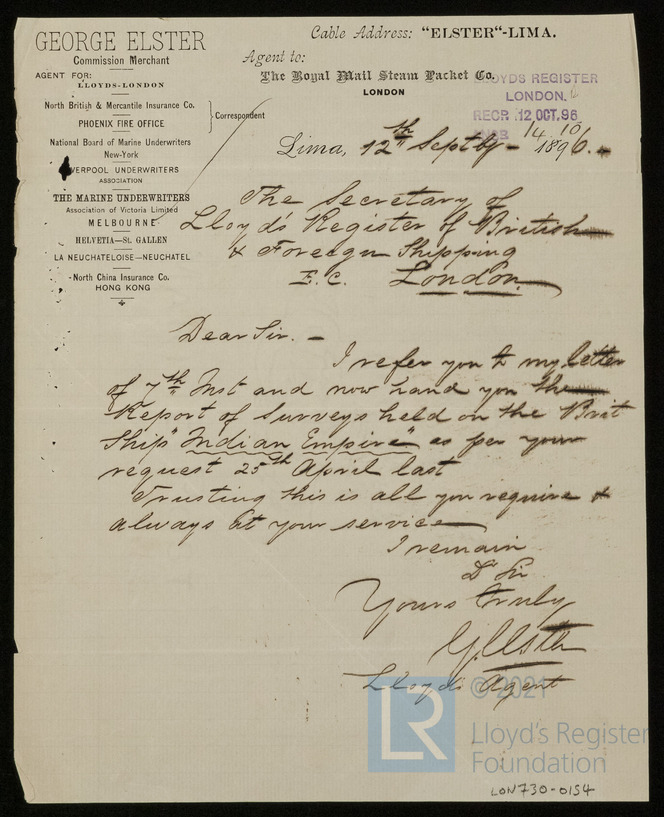 GEORGE ELSTER
Commission Merchant
AGENT FOR:
LLOYDS-LONDON
North British & Mercantile Insurance Co.
PHOENIX FIRE OFFICE
Correspondent
National Board of Marine Underwriters
New-York
VERPOOL UNDERWRITERS
ASSOCIATION
THE MARINE UNDERWRITERS
Association of Victoria Limited
MELBOURNE
HELVETIA—St. GALLEN
LA NEUCHATELOISE—NEUCHATEL
North China Insurance Co.
HONG KONG
Cable Address: "ELSTER"-LIMA.
Agent to:
The Royal Mail Steam Packet Co.
LONDON
LLOYDS REGISTER
LONDON.
RECR 12 OCT. 96
14/10
Lima, 12th Septby - 1896.
The Secretary of
Lloyd's Register of British
& Foreign Shipping
E. C. London
Dear Sir. -
I refer you to my letter
of 7th Inst and now hand you the
Report of Surveys held on the Brit
Ship "Indian Empire" as per your
request 25th April last
Trusting this is all you require &
always at your service
I remain
Dr Sir
Yours truly
G Elster
Lloyd's Agent
© 2021
LR
Lloyd's Register
Foundation
LON730-0154